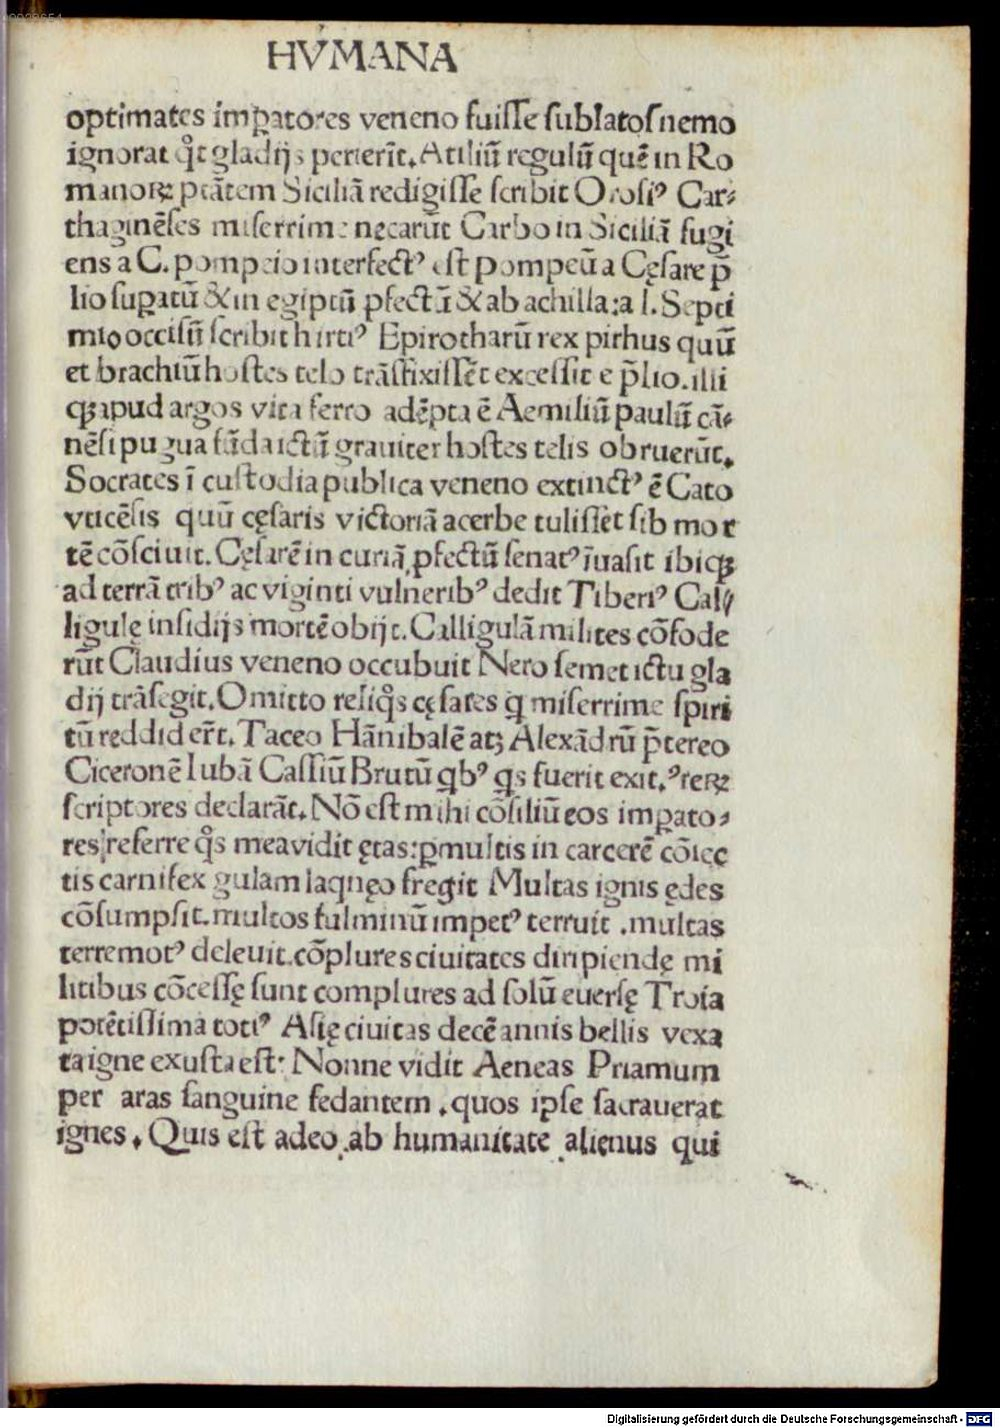 HVMANA
optimates imꝑatores veneno fuiſſe ſublatoſ nemo
ignorat q̊t gladijs perierīt. Atiliū regulū quē in Ro
manoꝝ ptātem Siciliā redigiſſe ſcribit Oroſiꝰ Car⸗
thaginēſes miſerrime necarūt Carbo in Siciliā fugi
ens a C. pompeio interfectꝰ eſt pompeū a Cęſare p̄
lio ſuꝑatū & in egiptū pfectū & ab achilla: a l. Septi
mio occiſū ſcribit hirtiꝰ Epirotharū rex pirhus quū
et brachiū hoſtes telo trāſfixiſſēt exceſſit e p̄lio. illi
qꝫ apud argos vita ferro adēpta ē Aemiliū paulū cā⸗
nēſi pugna fūda ictū grauiter hoſtes telis obruerūt.
Socrates ī cuſtodia publica veneno extinctꝰ ē Cato
vticēſis quū cęſaris victoriā acerbe tuliſſet ſib mor
tē cōſciuit. Cęſarē in curiā pfectū ſenatꝰ īuaſit ibiqꝫ
ad terrā tribꝰ ac viginti vulneribꝰ dedit Tiberiꝰ Cal⸗
ligulę inſidijs mortē obijt. Calligulā milites cōfode
rūt Claudius veneno occubuit Nero ſemet ictu gla
dij trāſegit. Omitto reliq̊s cęſares q miſerrime ſpiri
tū reddider̄t. Taceo Hānibalē atꝫ Alexādrū p̄tereo
Ciceronē Iubā Caſſiū Brutū qbꝰ qs fuerit exit.ꝰ reꝝ
ſcriptores declarāt. Nō eſt mihi cōſiliū eos imꝑato⸗
res referre q̊s mea vidit ętas: ꝑmultis in carcerē cōiec
tis carnifex gulam laqnęo fregit Multas ignis ędes
cōſumpſit. multos fulminū impetꝰ terruit . multas
terremotꝰ deleuit. cōplures ciuitates diripiendę mi
litibus cōceſſę ſunt complures ad ſolū euerſę Troia
potētiſſima totiꝰ Aſię ciuitas decē annis bellis vexa
ta igne exuſta eſt: Nonne vidit Aeneas Priamum
per aras ſanguine fedantem . quos ipſe ſacrauerat
ignes. Quis eſt adeo ab humanitate alienus qui
Digitalisierung gefördert durch die Deutsche Forschungsgemeinschaft - DFG